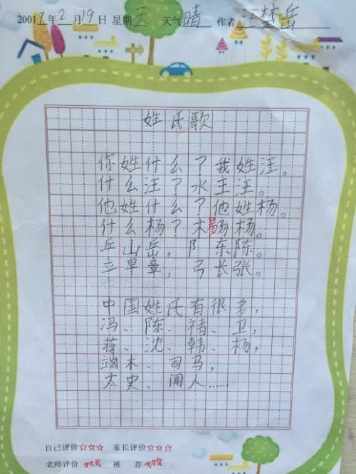 2001年2月19日 星期三 天气晴 作者
姓氏歌
你姓什么？我姓汪。
什么汪？水王汪。
他姓什么？他姓杨。
什么杨？木易杨。
丘山岳，阝东陈。
立早章，弓长张。
中国姓氏有很多，
冯、陈、褚、卫，
蒋、沈、韩、杨，
端木、司马，
太史、闻人……
自己评价☆☆☆ 家长评价☆☆☆
老师评价 推荐